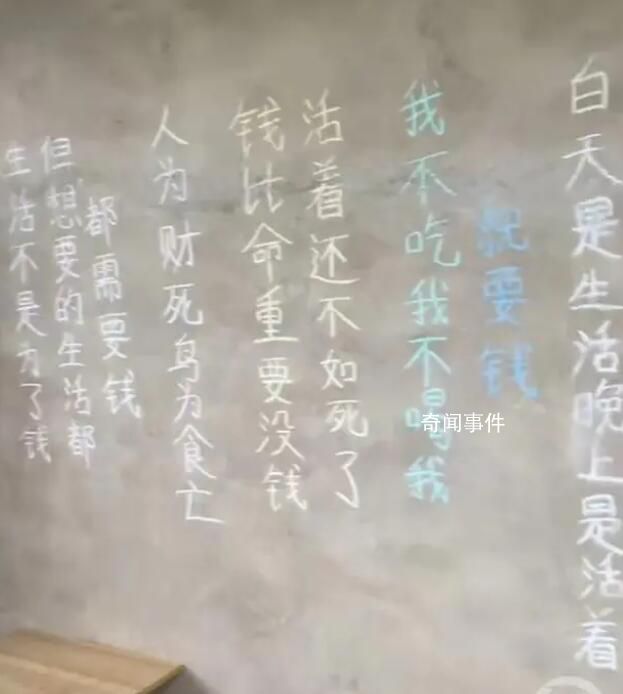 生活不是为了钱
但想要的生活都
都需要钱
人为财死鸟为食亡
钱比命重要没钱
活着还不如死了
我不吃我不喝我
就要钱
白天是生活晚上是活着
奇闻事件